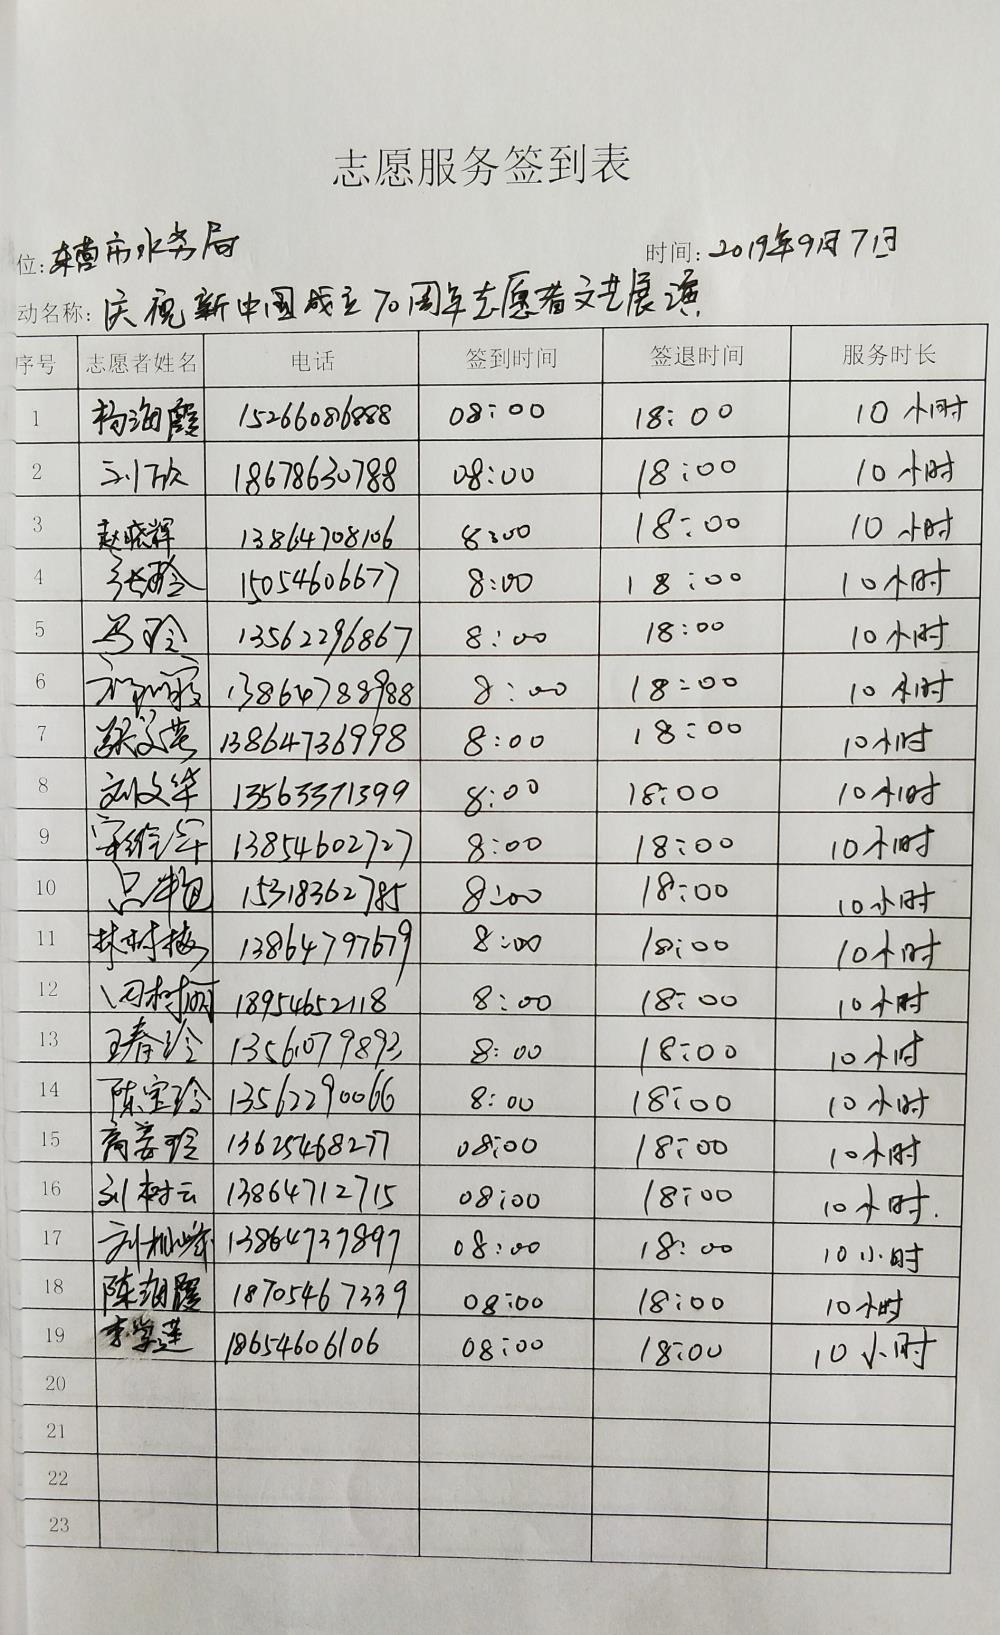 志愿服务签到表
位: 东营市水务局 时间: 2019年9月7日
动名称: 庆祝新中国成立70周年志愿者文艺展演
序号 志愿者姓名 电话 签到时间 签退时间 服务时长
1 杨海霞 15266086888 08:00 18:00 10小时
2 刘欣 18678630788 08:00 18:00 10小时
3 赵晓辉 13864708106 8:00 18:00 10小时
4 15054606677 8:00 18:00 10小时
5 马玲 13562296867 8:00 18:00 10小时
6 13864788988 8:00 18:00 10小时
7 13864736998 8:00 18:00 10小时
8 刘文华 13563371399 8:00 18:00 10小时
9 13854602727 8:00 18:00 10小时
10 15318362785 8:00 18:00 10小时
11 林树梅 13864797679 8:00 18:00 10小时
12 18954652118 8:00 18:00 10小时
13 王春玲 13561079893 8:00 18:00 10小时
14 陈宝玲 13562290066 8:00 18:00 10小时
15 13625468277 08:00 18:00 10小时
16 刘树云 13864712715 08:00 18:00 10小时.
17 13864737897 08:00 18:00 10小时
18 陈海霞 18705467339 08:00 18:00 10小时
19 李学莲 18654606106 08:00 18:00 10小时
20
21
22
23